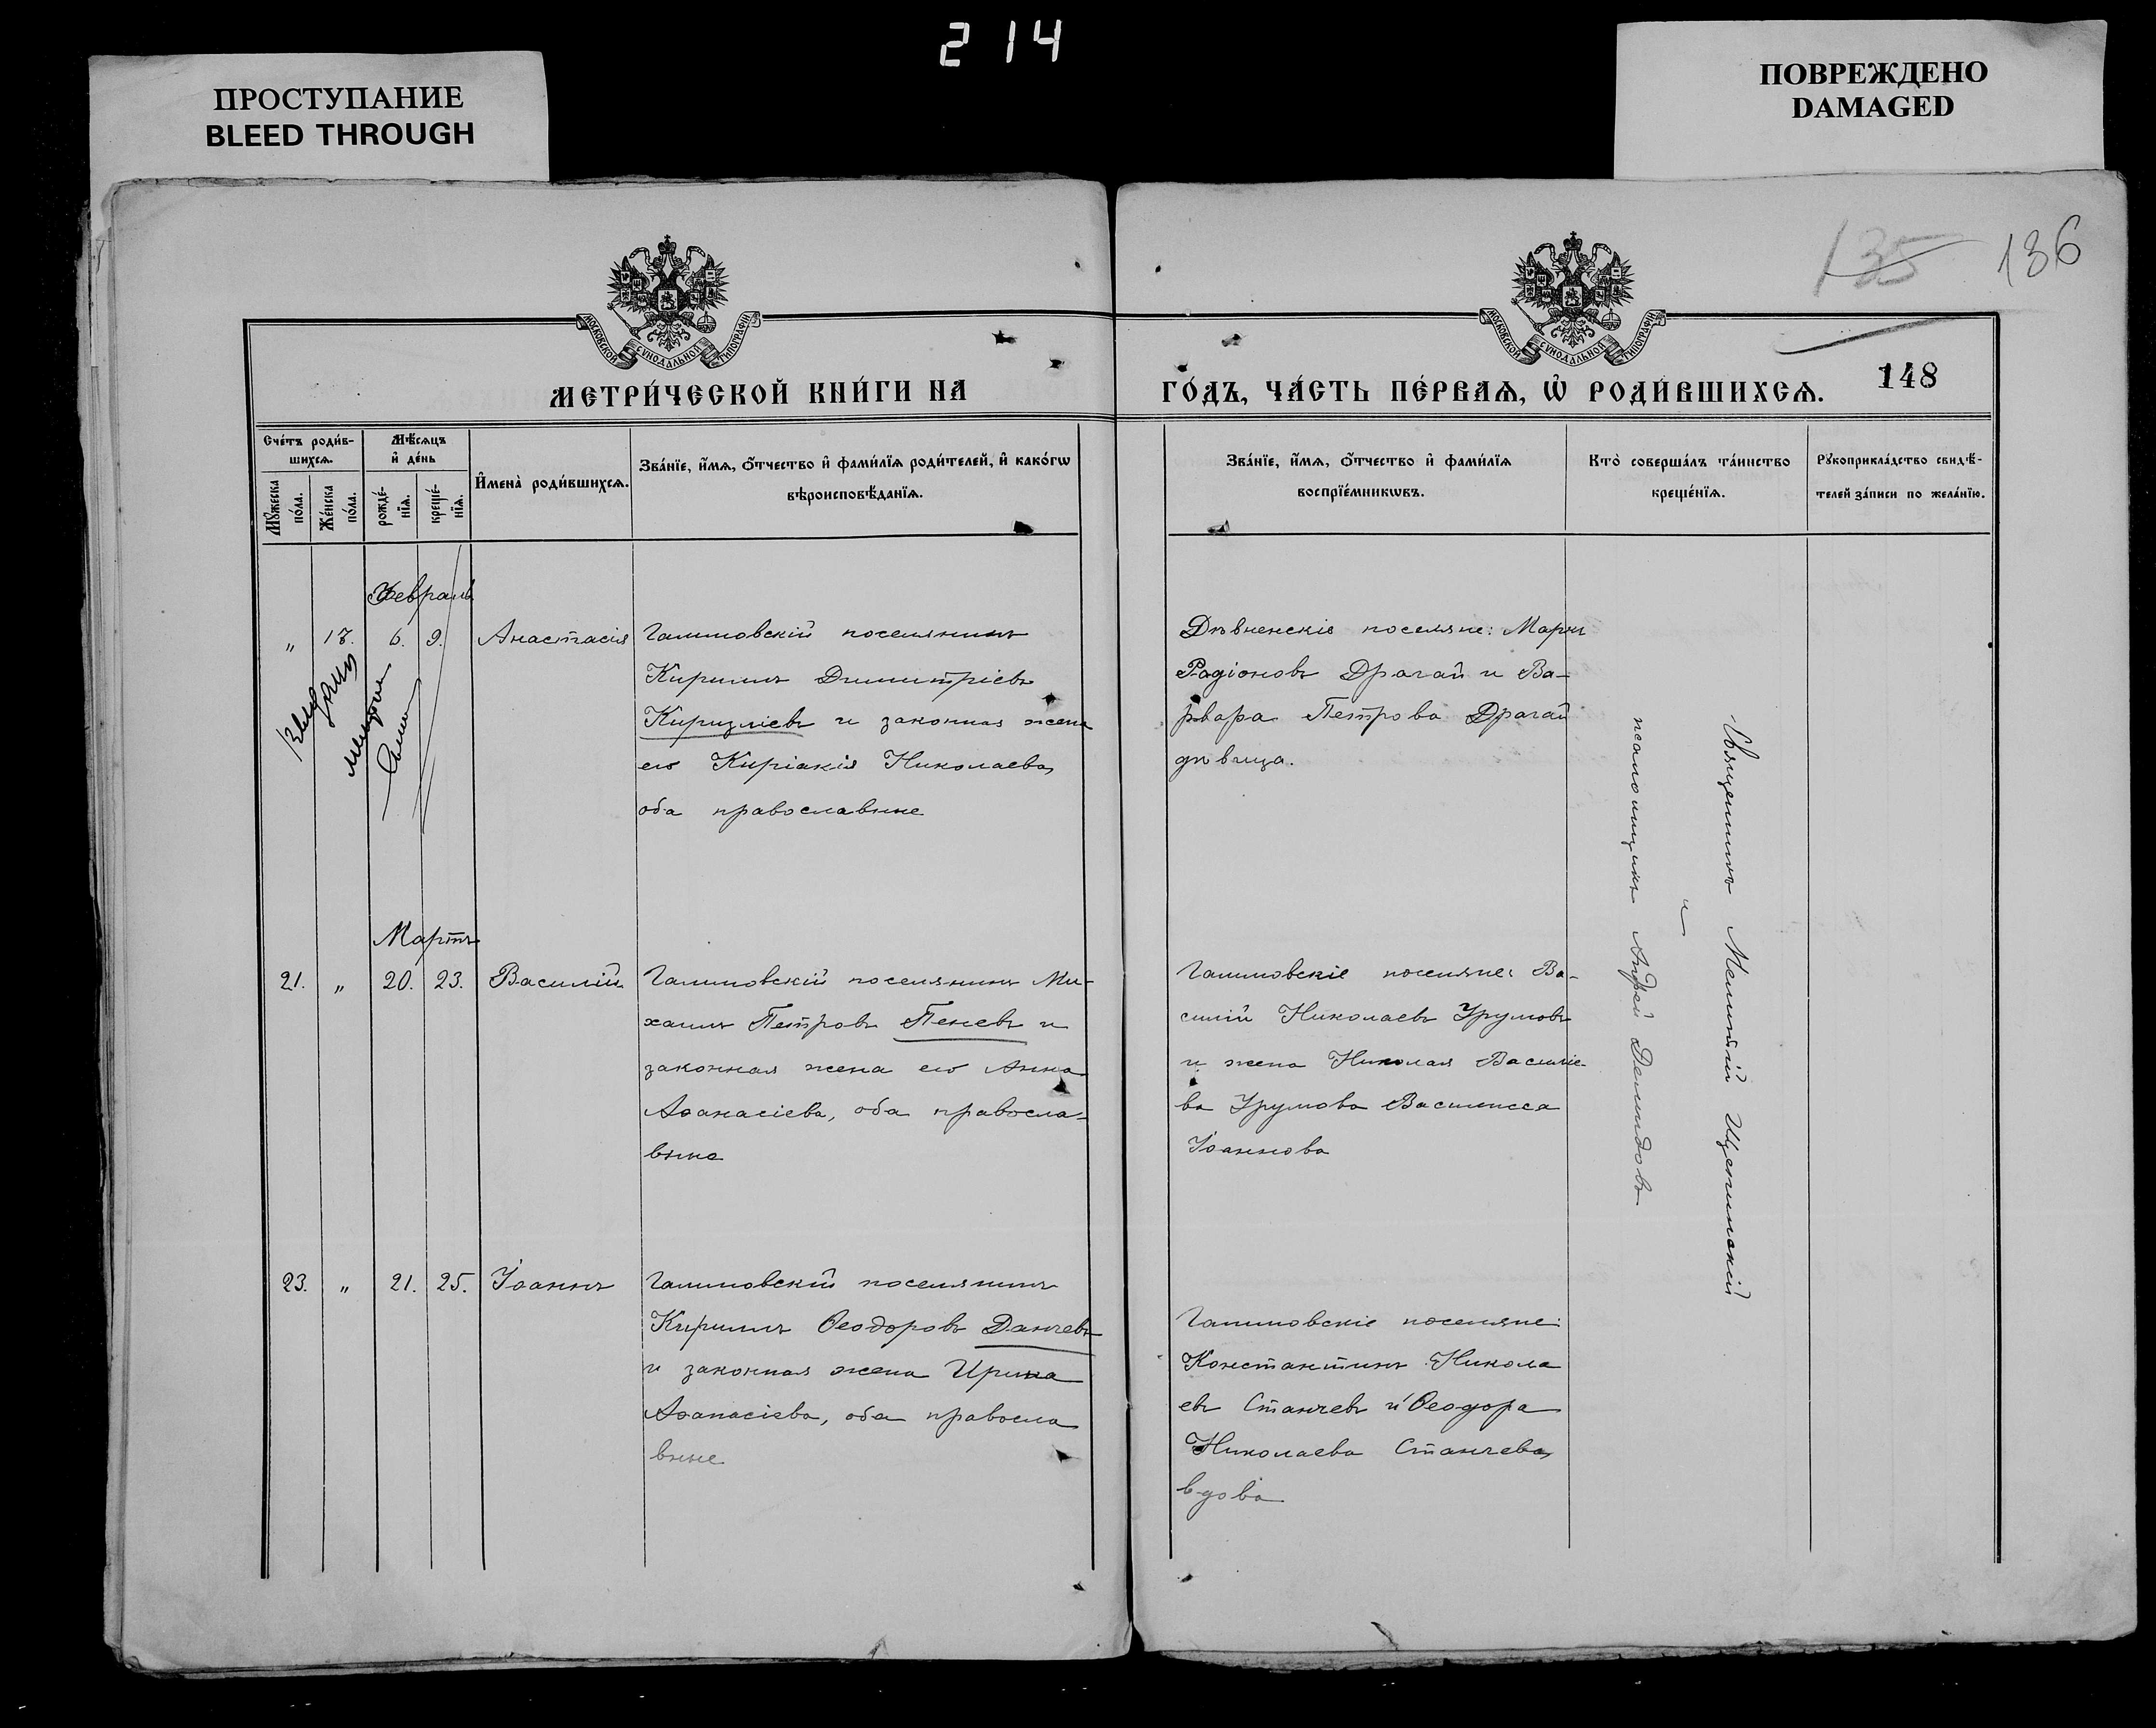 214
ПРОСТУПАНИЕ
BLEED THROUGH
ПОВРЕЖДЕНО
DAMAGED
135 136
МОСКОВСКОЙ СУНОДАЛЬНОЙ ТИПОГРАФІИ
МОСКОВСКОЙ СУНОДАЛЬНОЙ ТИПОГРАФІИ
МЕТРИ́ЧЕСКОЙ КНИ́ГИ НА
ГО́ДЪ, ЧА́СТЬ ПЕ́РВАѦ, Ѡ҆ РОДИ́ВШИХСѦ.
148
Сче́тъ роди́в-
шихсѧ.
Мꙋ́жеска
по́ла.
Же́нска
по́ла.
Мѣ́сѧцъ
и҆ де́нь
рожде́-
нїѧ.
креще́-
нїѧ.
И҆мена̀ роди́вшихсѧ.
Зва́нїе, и҆́мѧ, ѻ҆́тчество и҆ фами́лїѧ роди́телей, и҆ како́гѡ
вѣроисповѣ́данїѧ.
Зва́нїе, и҆́мѧ, ѻ҆́тчество и҆ фами́лїѧ
воспрїе́мникѡвъ.
Кто̀ соверша́лъ та́инство
креще́нїѧ.
Рꙋкоприкла́дство свидѣ́-
телей за́писи по жела́нїю.
Февраль
" 17. 6. 9. Анастасія
Галиловскій поселянинъ
Кириллъ Димитріевъ
Киризліевъ и законная жена
его Киріакія Николаева,
оба православные
Дѣвненскіе поселяне: Маркъ
Радіоновъ Драгай и Ва-
рвара Петрова Драгай
дѣвица.
Мартъ
21. " 20. 23. Василій
Галиловскій поселянинъ Ми-
хаилъ Петровъ Пеневъ и
законная жена его Анна
Аѳанасіева, оба правосла-
вные
Галиловскіе поселяне: Ва-
силій Николаевъ Урумовъ
и жена Николая Василіе-
ва Урумова Василисса
Іоаннова
23. " 21. 25. Іоаннъ
Галиловскій поселянинъ
Кириллъ Ѳеодоровъ Данчевъ
и законная жена Ирина
Аѳанасіева, оба правосла
вные
Галиловскіе поселяне:
Константинъ Никола
евъ Станчевъ и Ѳеодора
Николаева Станчева,
вдова
Священникъ Мелитій Щегинскій
и
псаломщикъ Андрей Демидовъ